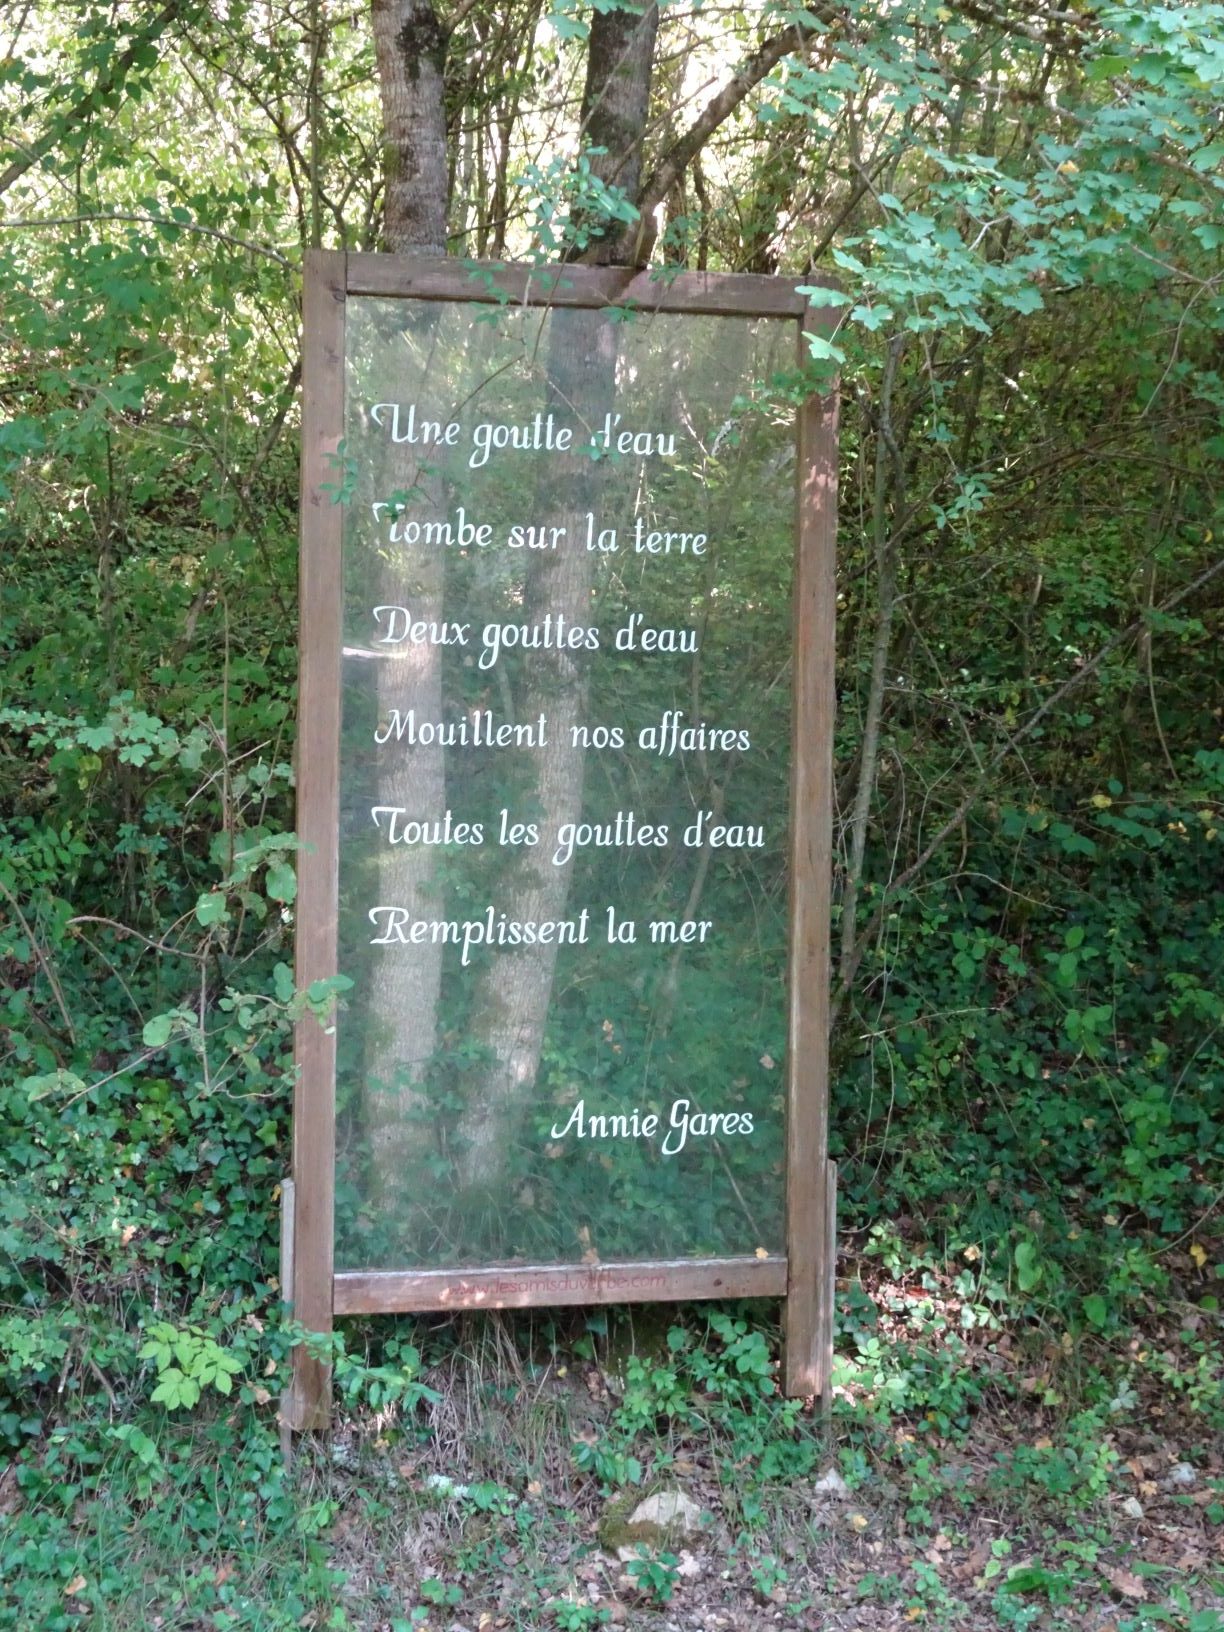 Une goutte d'eau
Tombe sur la terre
Deux gouttes d'eau
Mouillent nos affaires
Toutes les gouttes d'eau
Remplissent la mer
Annie Gares
www.lesamisduverbe.com